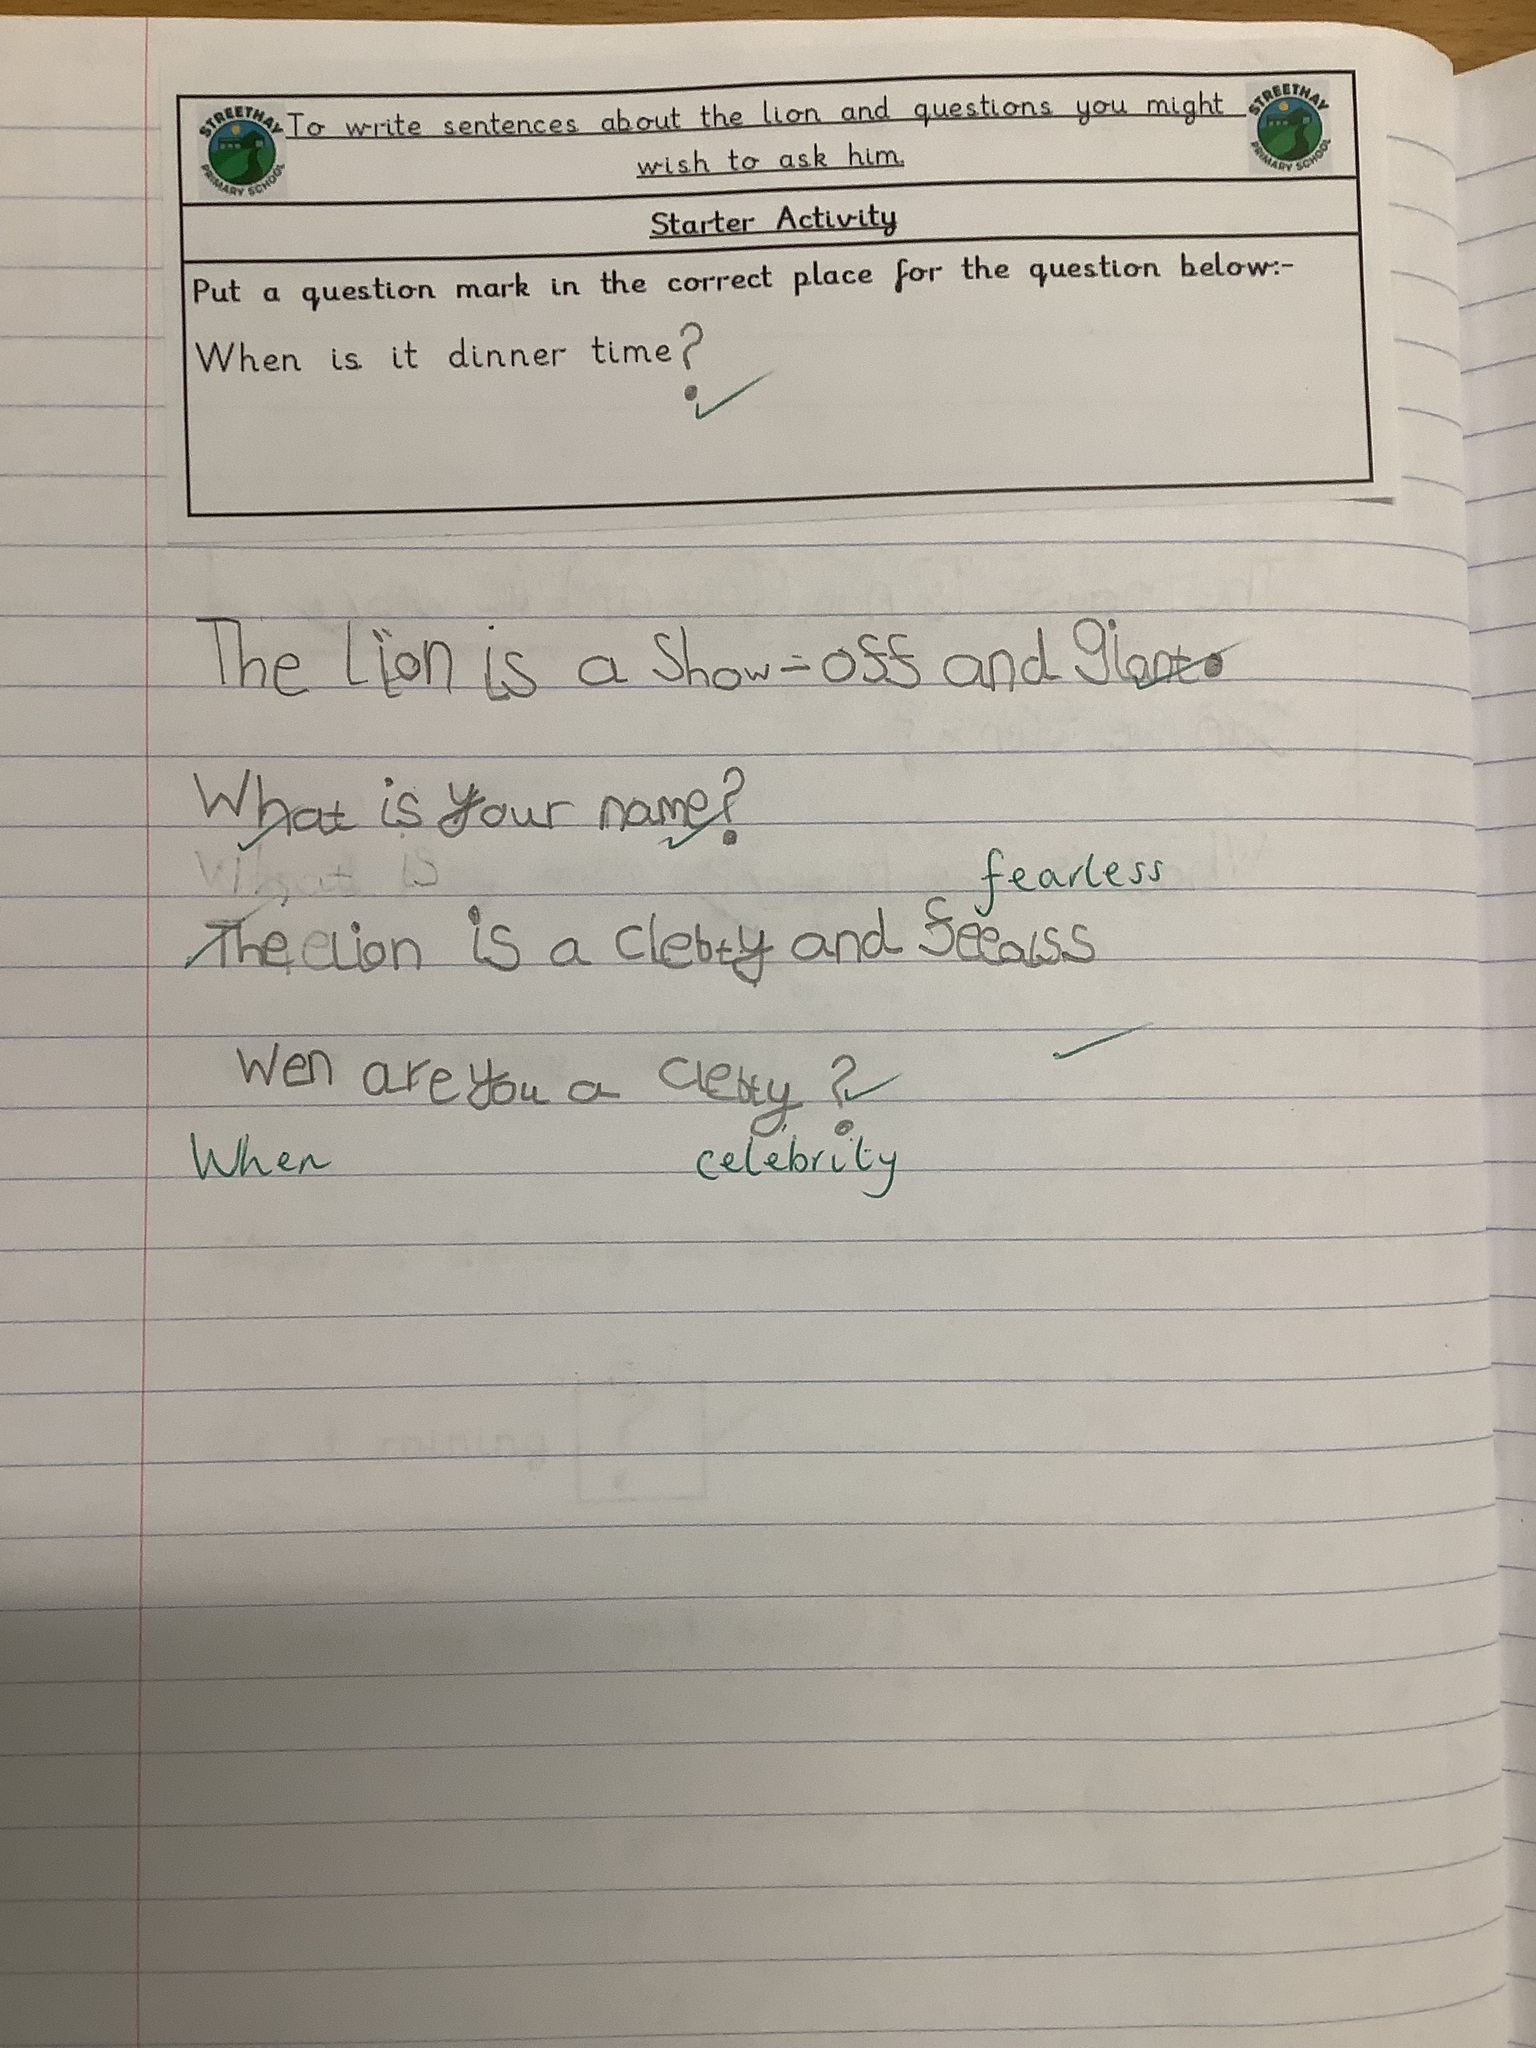 STREETHAY PRIMARY SCHOOL
To write sentences about the lion and questions you might
STREETHAY PRIMARY SCHOOL
wish to ask him.
Starter Activity
Put a question mark in the correct place for the question below:-
When is it dinner time?
The Lion is a Show-off and giant.
What is your name?
What is
fearless
The lion is a clebty and feealss
Wen are you a clebty?
When celebrity